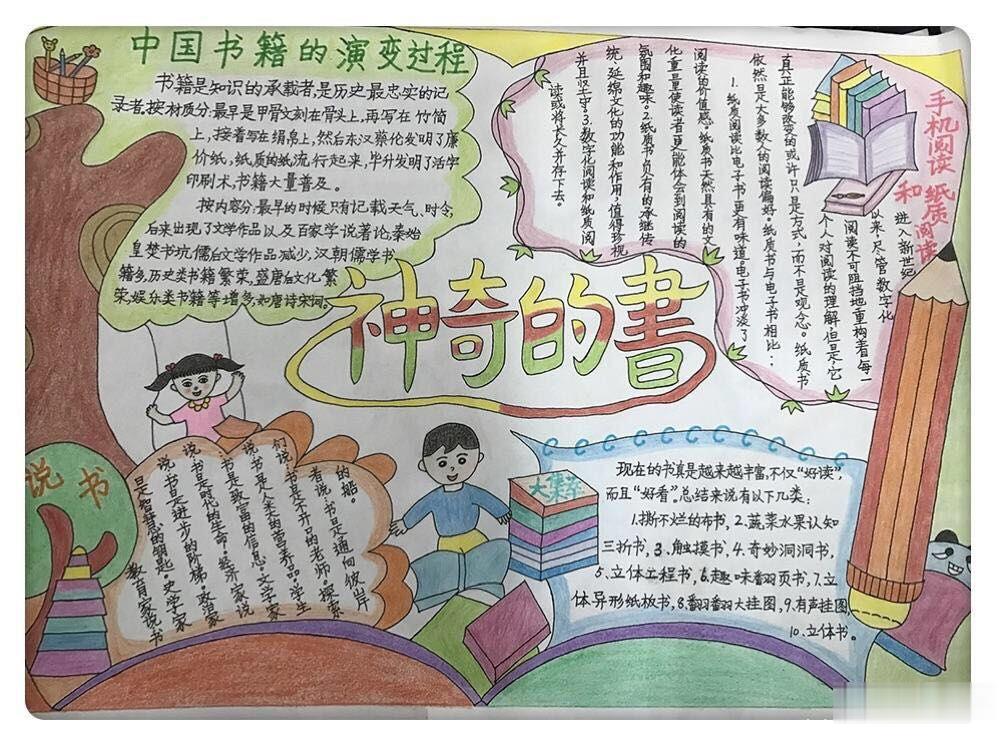 中国书籍的演变过程
书籍是知识的承载者,是历史最忠实的记
录者,按材质分:最早是甲骨文刻在骨头上,再写在竹简
上,接着写在绢帛上,然后东汉蔡伦发明了廉
价纸,纸质的纸流行起来,毕升发明了活字
印刷术,书籍大量普及。
按内容分:最早的时候只有记载天气、时令,
后来出现了文学作品以及百家学说著论,秦始
皇焚书坑儒后文学作品减少,汉朝儒学书
籍多,历史类书籍繁荣,盛唐后文化繁
荣,娱乐类书籍等增多,如唐诗宋词。
手机阅读
和纸质阅读
进入新世纪
以来,尽管数字化
阅读不可阻挡地重构着每一
个人对阅读的理解,但是,它
真正能够改变的或许只是方式,而不是观念。纸质书
依然是大多数人的阅读偏好。纸质书与电子书相比:
1.纸质阅读比电子书更有味道。电子书冲淡了
阅读的价值感。纸质书天然具有的文
化重量使读者更能体会到阅读的
氛围和趣味。2.纸质书负有的承继传
统,延绵文化的功能和作用,值得珍视
并且坚守。3.数字化阅读和纸质阅
读或将长久并存下去。
神奇的書
说书
教育家说:书
是智慧的钥匙。史学家
说:书是进步的阶梯。政治家
说:书是时代的生命。经济家说
:书是致富的信息。文学家
说:书是人类的营养品。学生
们说:书是不开口的老师。探索
者说:书是通向彼岸
的船。
大集合
现在的书真是越来越丰富,不仅“好读”,
而且“好看”。总结来说有以下几类:
1.撕不烂的布书,2.蔬菜水果认知
三折书,3.触摸书,4.奇妙洞洞书,
5.立体工程书,6.趣味翻页书,7.立
体异形纸板书,8.翻翻大挂图,9.有声挂图
10.立体书。